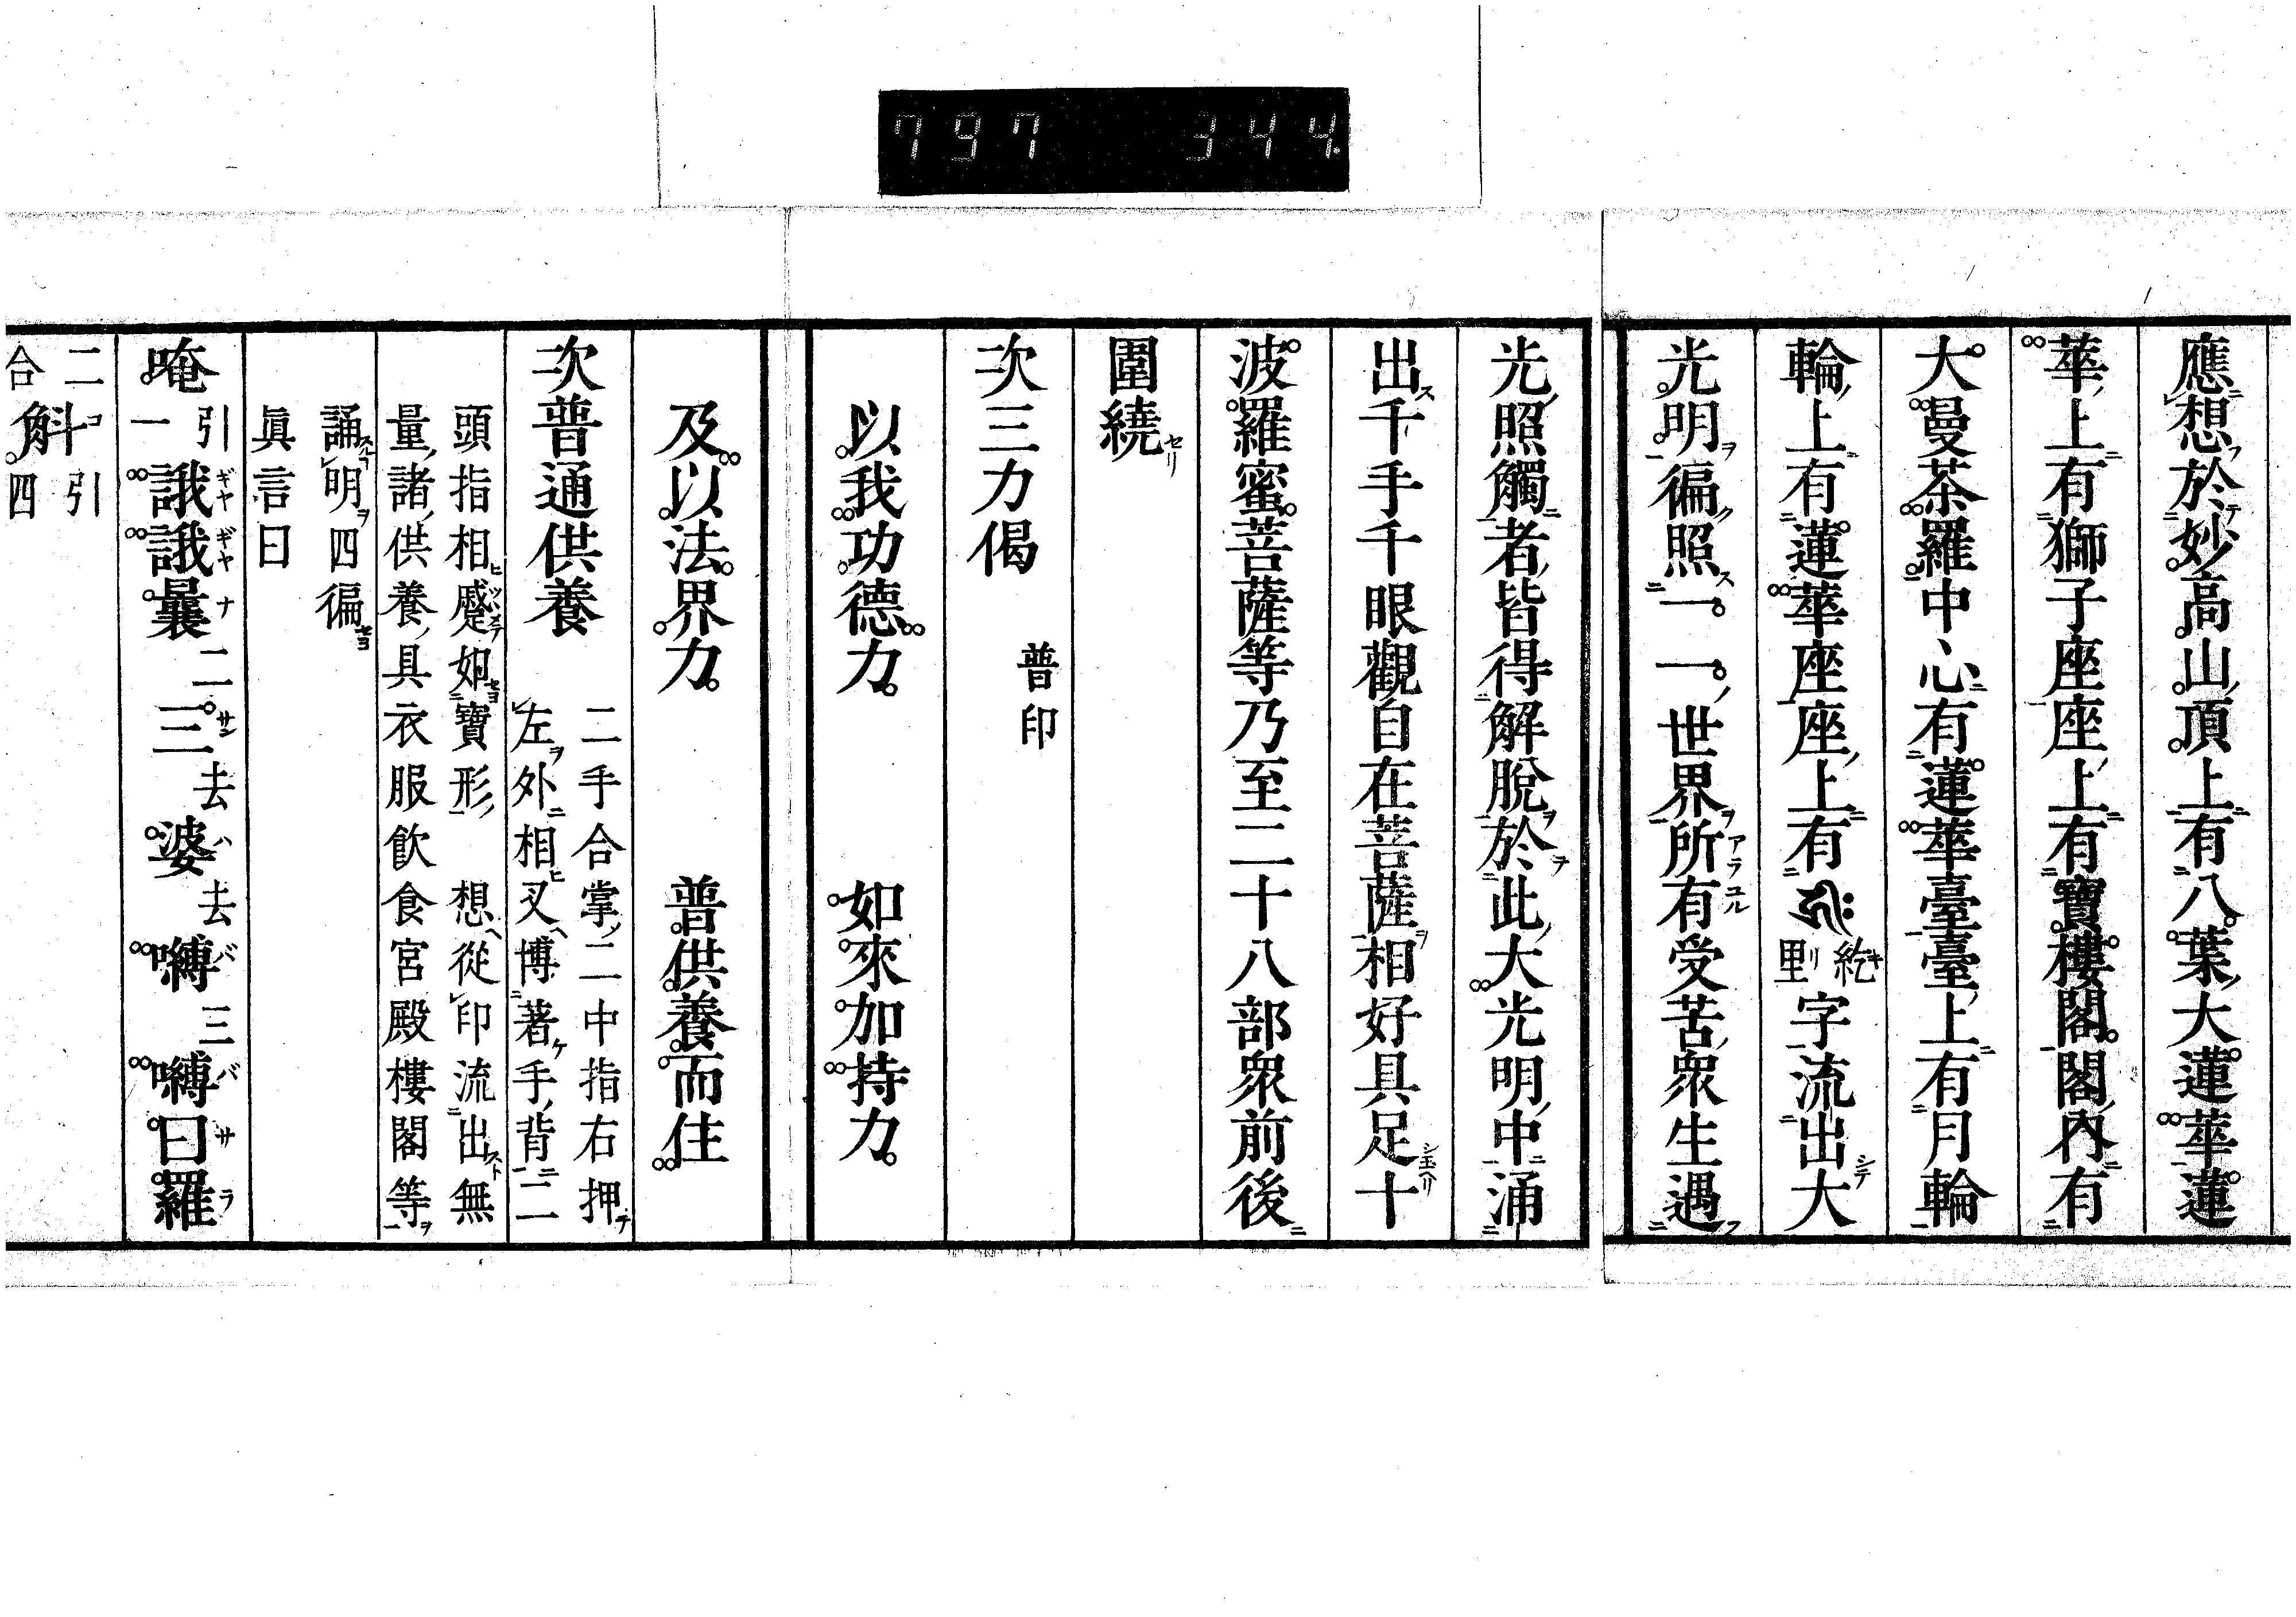 797 344.
應想於妙高山頂上有八葉大蓮華蓮
華上有獅子座座上有寶樓閣閣內有
大曼荼羅中心有蓮華臺臺上有月輪
輪上有蓮華座座上有紇哩字流出大
光明徧照一一世界所有受苦眾生遇
光照觸者皆得解脫於此大光明中涌
出千手千眼觀自在菩薩相好具足十
波羅蜜菩薩等乃至二十八部眾前後
圍繞
次三力偈 普印
以我功德力 如來加持力
及以法界力 普供養而住
次普通供養 二手合掌二中指右押
左外相叉博著手背二
頭指相蹙如寶形 想從印流出無
量諸供養具衣服飲食宮殿樓閣等
誦明四徧
眞言曰
唵引一誐誐曩二三去婆去嚩三嚩曰羅
二合斛引四